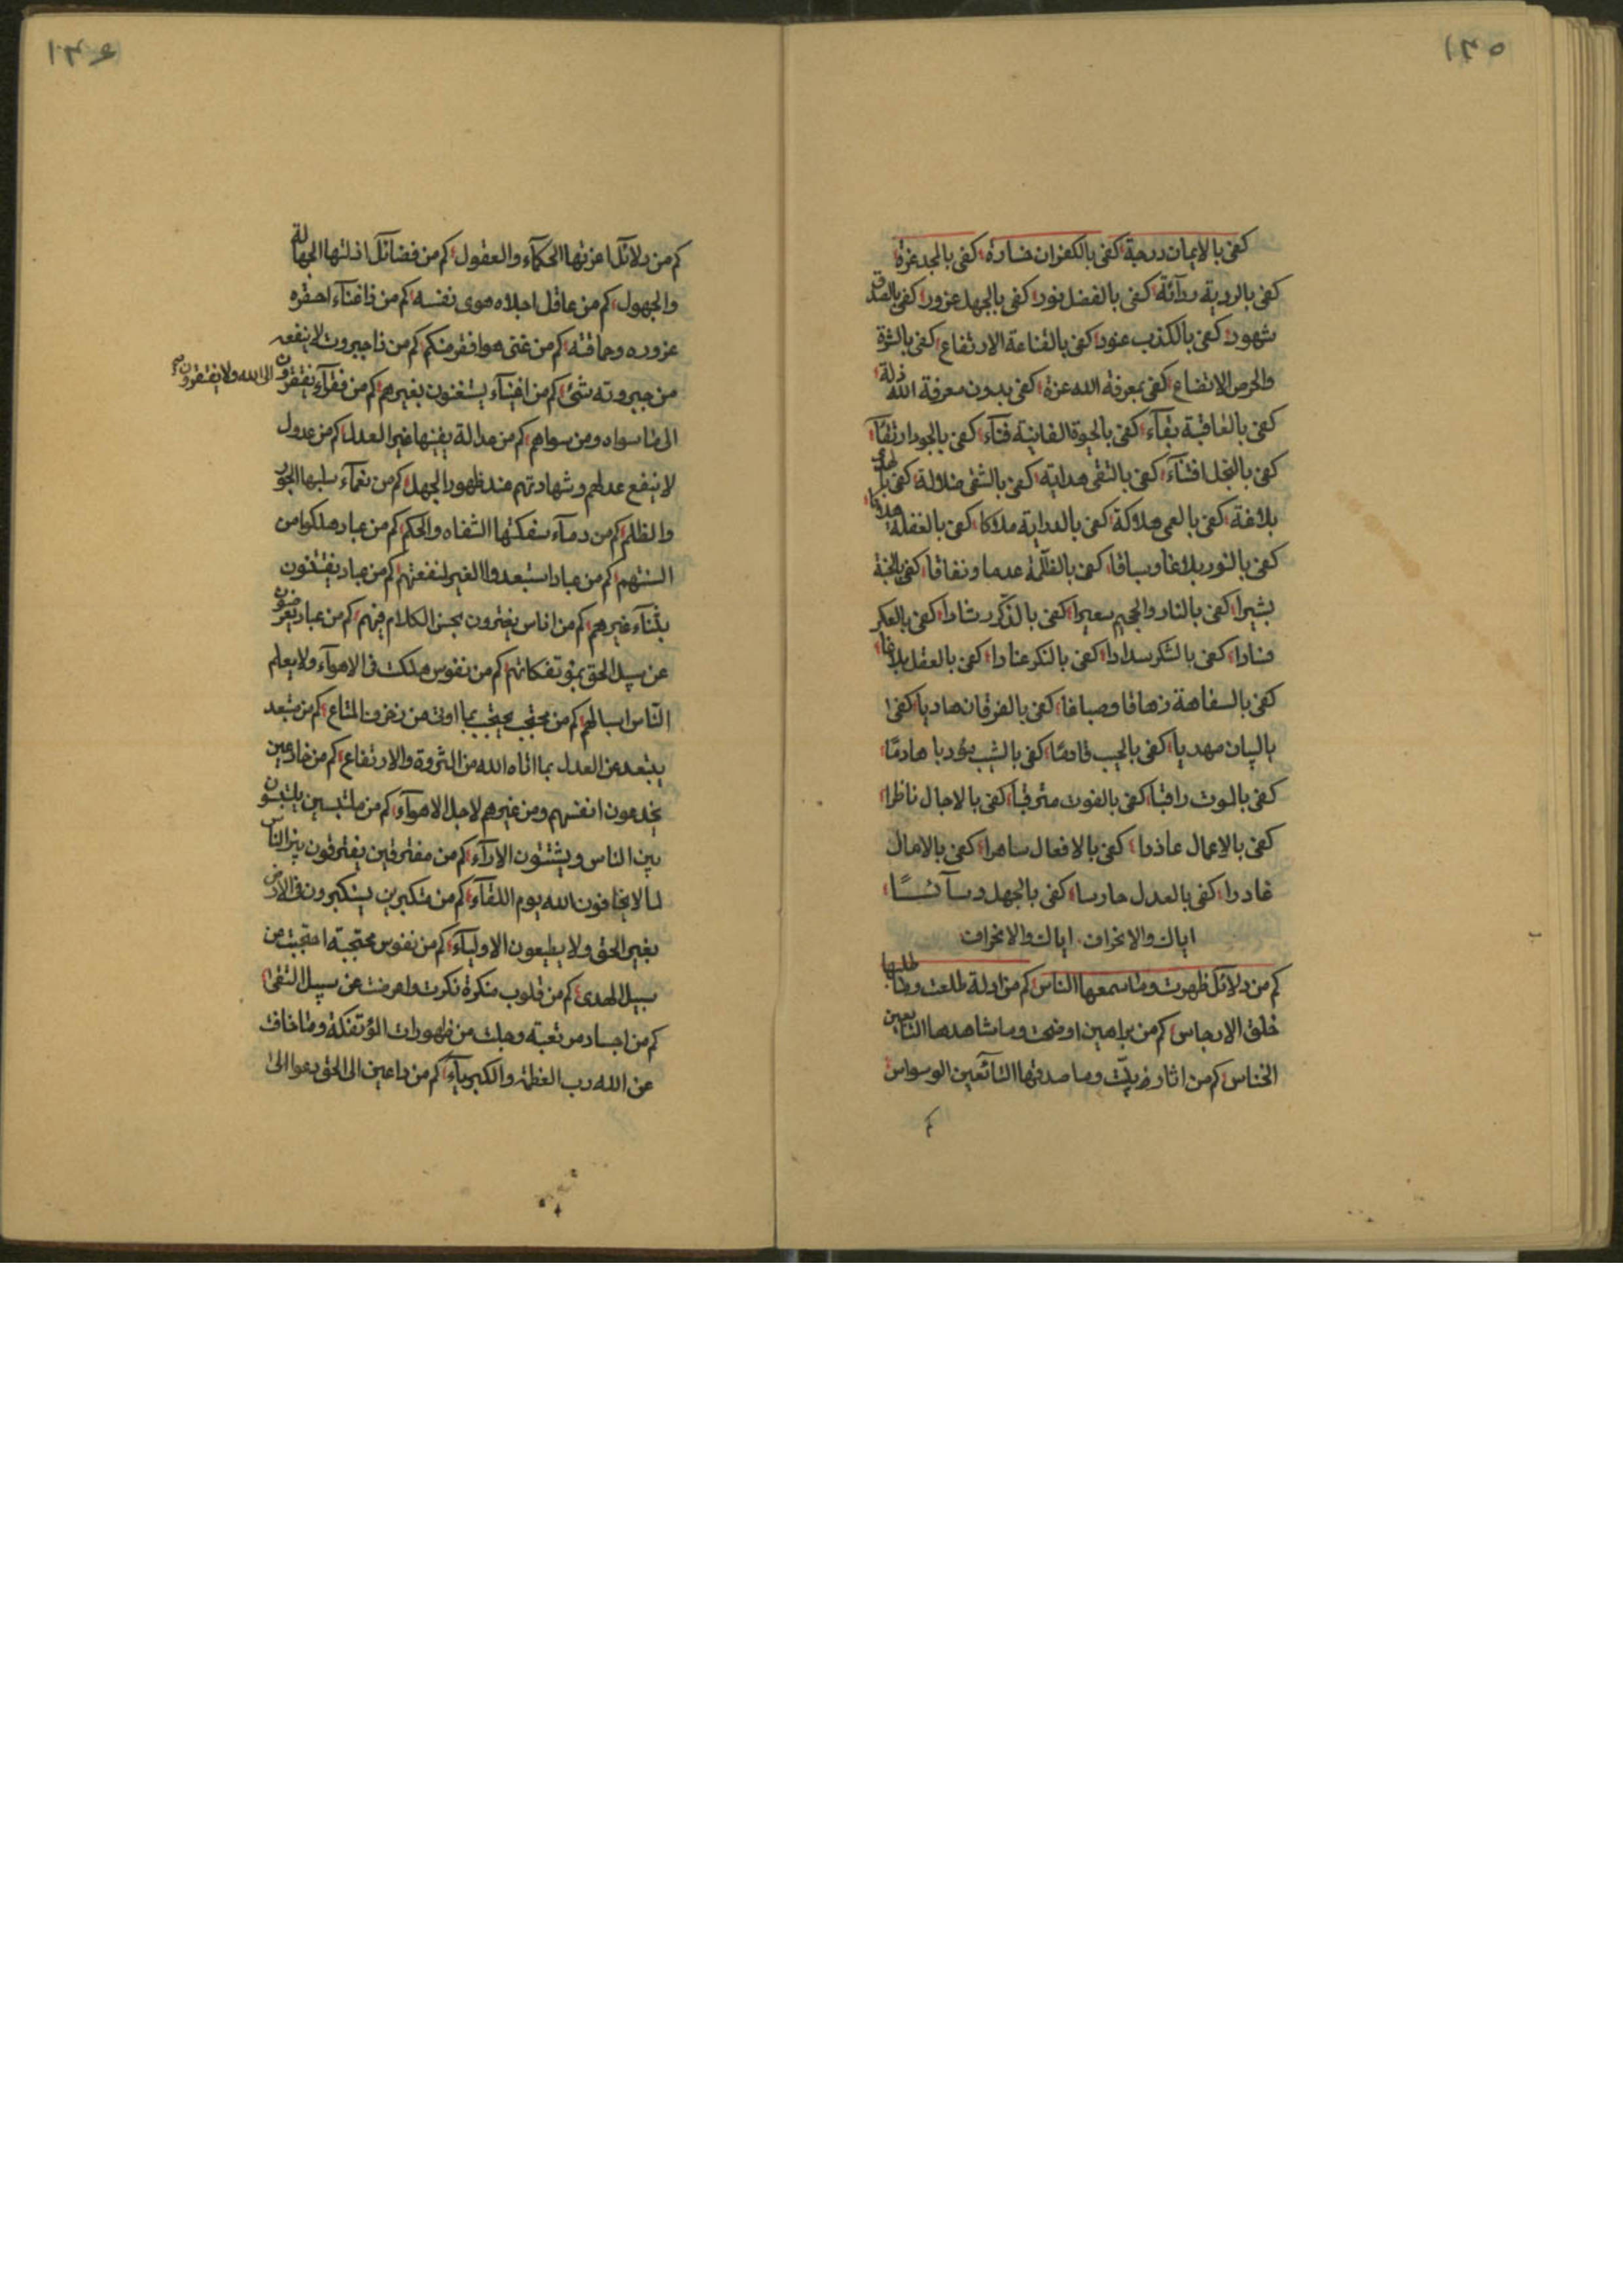 ١٣٥
كفى بالايمان درجة كفى بالكفران خسارة كفى بالمجد عزة
كفى بالروية كفى بالفضل نور كفى بالجهل غرور كفى بالصدق
شهود كفى بالكذب عنود كفى بالقناعة الارتفاع كفى بالثروة
والحرص الاتضاع كفى بمعرفة الله عزة كفى بدون معرفة الله ذلة
كفى بالعاقبة بقآء كفى بالحيوة الفانية فنآء كفى بالجود ارتقآء
كفى بالبخل كفى بالتقى هداية كفى بالشقى ضلالة كفى
بلاغة كفى بالعمى هلاكة كفى كفى بالغفلة
كفى بالنور بلاغا وسباقا كفى بالظلمة عدما ونفاقا كفى بالجنة
بشيرا كفى بالنار والجحيم سعيرا كفى بالذكر رشادا كفى
فسادا كفى بالشكر سدادا كفى عنادا كفى بالعقل بلاغا
كفى بالسفاهة كفى بالفرقان هاديا كفى
بالبيان مهديا كفى كفى بالشيب هادما
كفى بالموت راقبا كفى بالفوت مترقبا كفى بالاجال ناظرا
كفى بالاعمال كفى بالافعال كفى بالامال
غادرا كفى بالعدل حارسا كفى بالجهل
اياك والانحراف اياك والانحراف
كم من دلائل ظهرت وما سمعها الناس كم من ادلة طلعت وما طلبها
خلق الارجاس كم من براهين اوضحت وما شاهدها التابعين
الخناس كم من اثار وما صدقها الوسواس
كم
١٣٦
كم من دلائل اعزتها الحكمآء والعقول كم من فضائل اذلتها الجهالة
والجهول كم من عاقل هوى نفسه كم من ذا غنآء احقره
غروره وحماقته كم من غنى هو افقر منكم كم من ذا جبروت لا ينفعه
من جبروته شئ كم من اغنيآء يستغنون بغيرهم كم من فقرآء يفتقرون الى الله ولا يفتقرون
الى ما سواه ومن سواهم كم من عدالة غير العدل كم من عدول
لا ينفع عدلهم وشهادتهم عند ظهور الجهل كم من نعمآء سلبها الجور
والظلم كم من دمآء سفكتها الشفاه والحكم كم من عباد هلكوا من
السنتهم كم من عباد استبعدوا الغير لنفعتهم كم من عباد
بثنآء غيرهم كم من اناس يغترون بحسن الكلام فيهم كم من عباد يعرضون
عن سبيل الحق كم من نفوس هلكت فى الاهوآء ولا يعلم
الناس كم من محتجب يحتجب بما اوتى من زخرف المتاع كم من مبتعد
يبتعد عن العدل بما اتاه الله من الثروة والارتفاع كم من خادعين
يخدعون انفسهم ومن غيرهم لاجل الاهوآء كم من ملتبسين يلتبسون
بين الناس ويشتتون الارآء كم من مفترقين يفترقون بين الناس
لما لا يخافون الله يوم اللقآء كم من متكبرين يستكبرون فى الارض
بغير الحق ولا يطيعون الاوليآء كم من نفوس محتجبة احتجبت عن
سبيل الهدى كم من قلوب منكرة نكرت واعرضت عن سبيل التقى
كم من اجساد مرتعبة وجلت من ظهورات المؤتفكة وما خافت
عن الله رب العظمة والكبريآء كم من داعين الى الحق دعوا الى